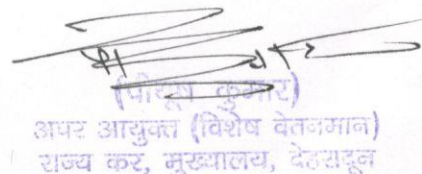 (पीयूष कुमार)
अपर आयुक्त (विशेष वेतनमान)
राज्य कर, मुख्यालय, देहरादून